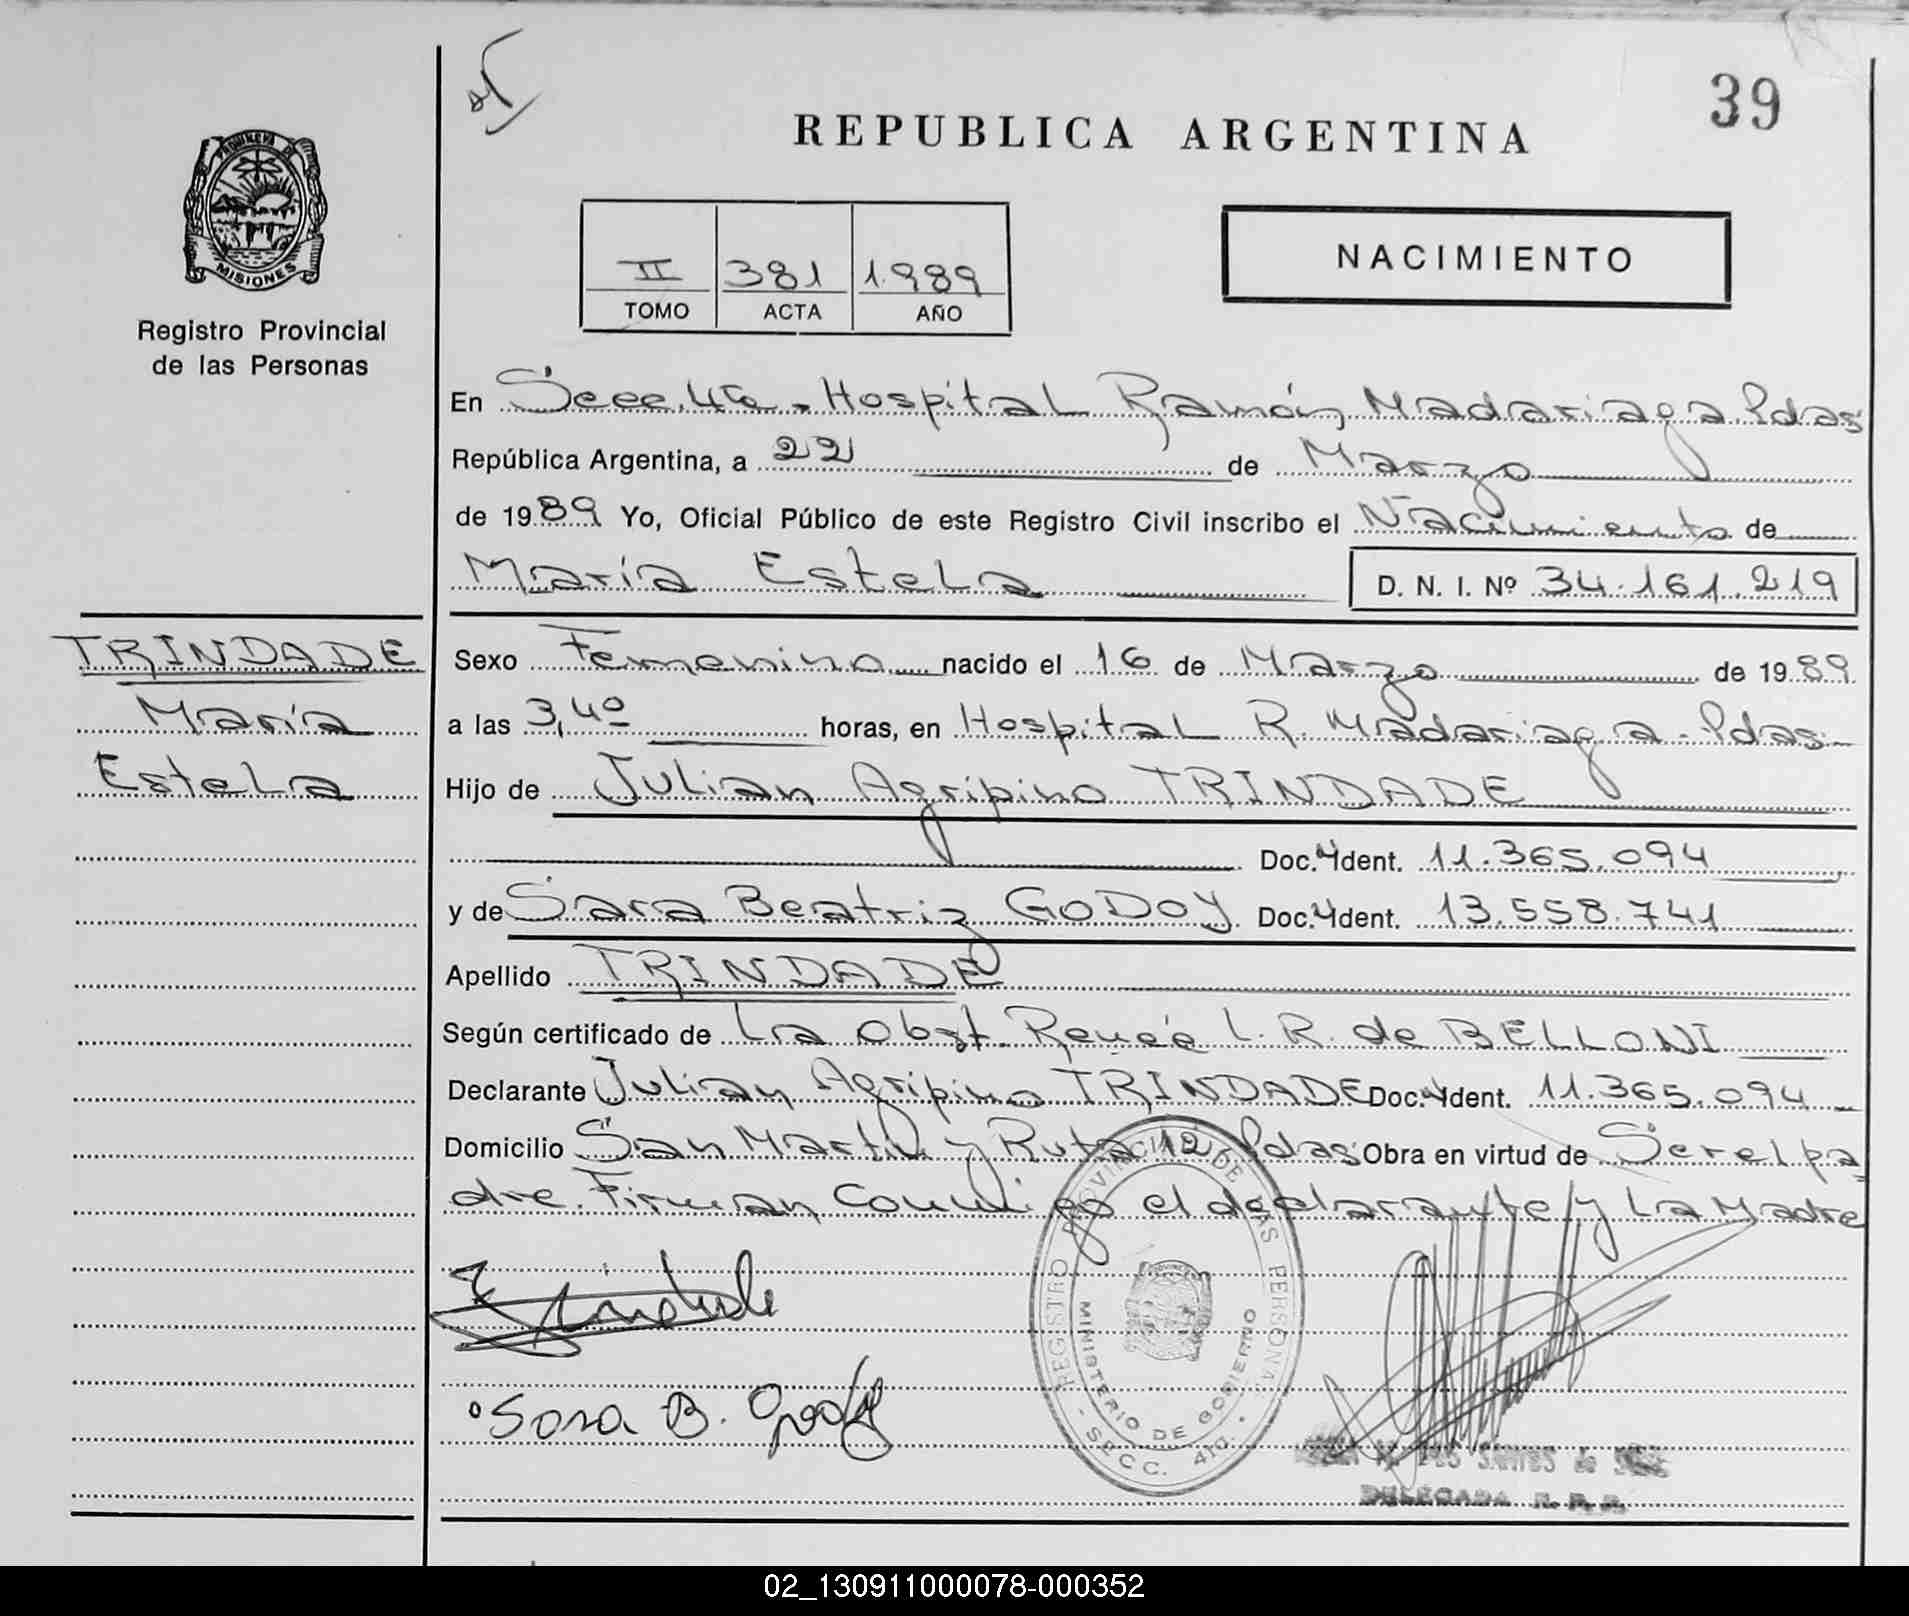 39
REPUBLICA ARGENTINA
PROVINCIA DE
MISIONES
Registro Provincial
de las Personas
II 381 1.989
TOMO ACTA AÑO
NACIMIENTO
En Secc. 4ta. Hospital Ramón Madariaga. Pdas
República Argentina, a 22 de Marzo
de 1989 Yo, Oficial Público de este Registro Civil inscribo el Nacimiento de
María Estela D. N. I. Nº 34.161.219
TRINDADE
María
Estela
Sexo Femenino nacido el 16 de Marzo de 1989
a las 3,40 horas, en Hospital R. Madariaga - Pdas
Hijo de Julian Agripino TRINDADE
Doc. Ident. 11.365.094
y de Sara Beatriz GODOY Doc. Ident. 13.558.741
Apellido TRINDADE
Según certificado de La Obst. Renée L. R. de BELLONI
Declarante Julian Agripino TRINDADE Doc. Ident. 11.365.094
Domicilio San Martin y Ruta 12, Pdas Obra en virtud de Ser el pa
dre. Firman conmigo el declarante y La Madre
Sara B. Godoy
REGISTRO PROVINCIAL DE LAS PERSONAS
MINISTERIO DE GOBIERNO
- SECC. 4ta. -
DOS SANTOS de
DELEGADA R. P. P.
02_130911000078-000352